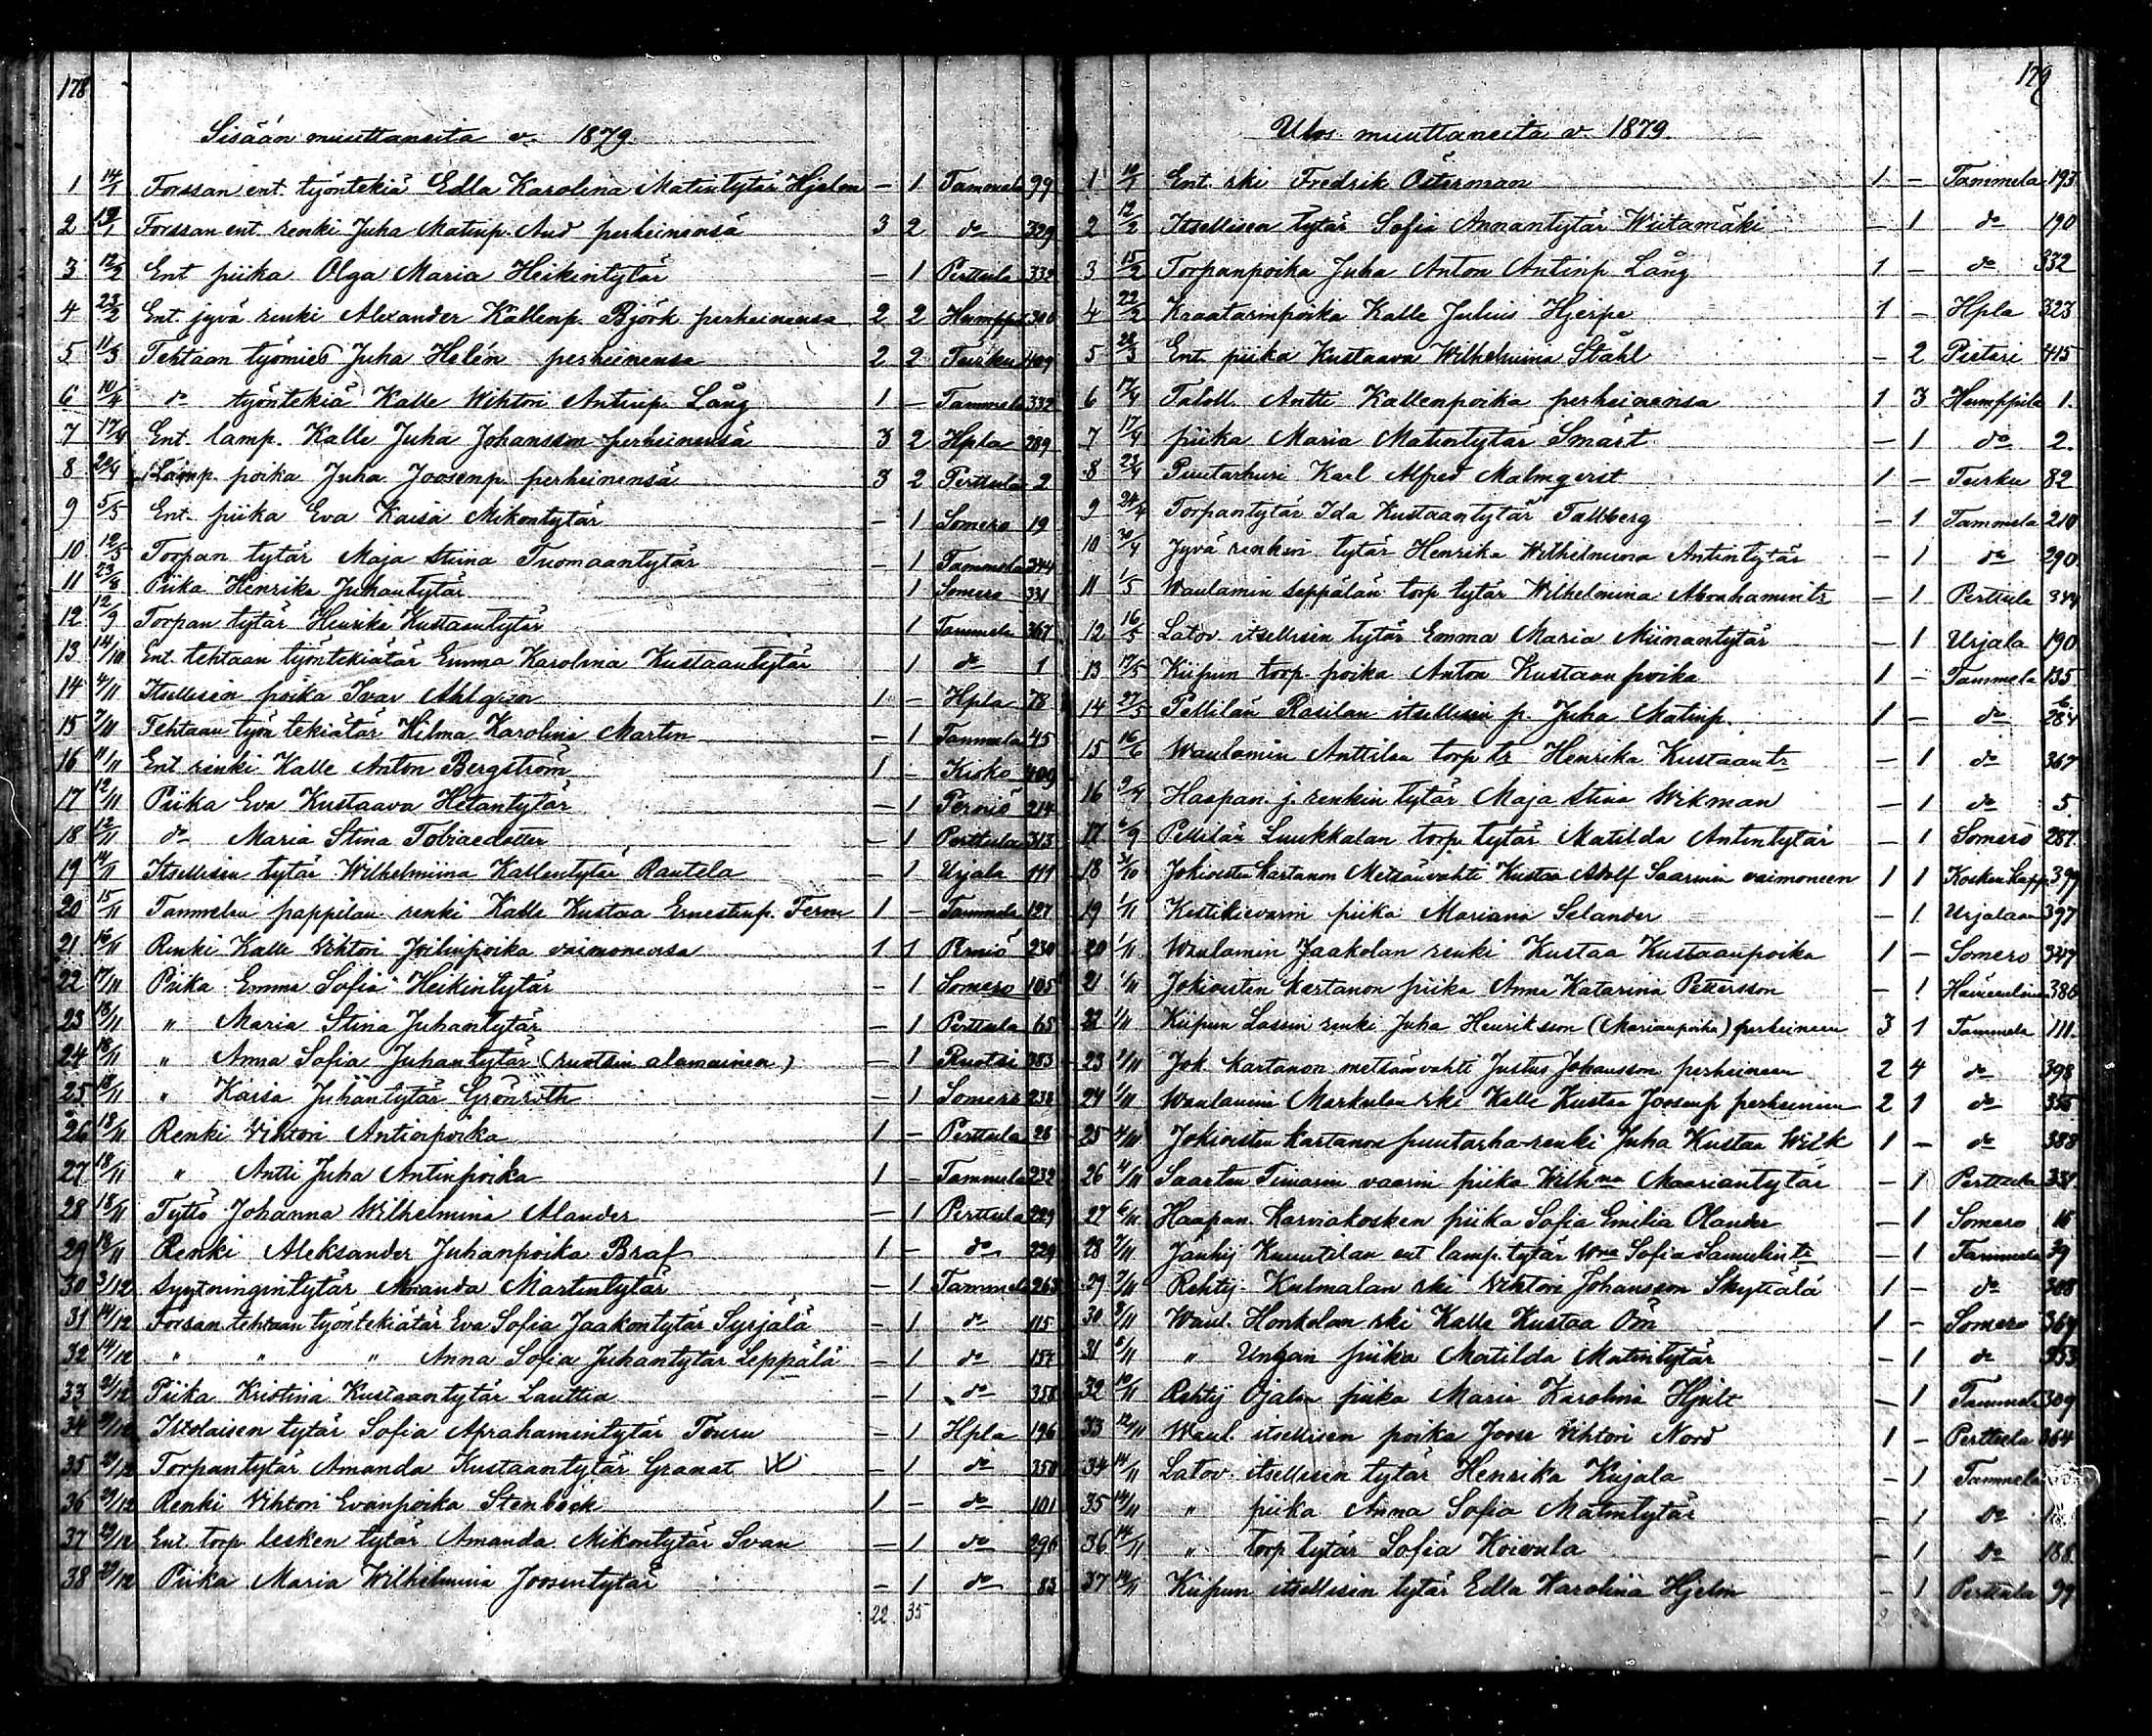 178
Sisään muuttaneita v. 1879.
1 14/1 Forssan ent. työntekiä Edla Karolina Matintytär Hjelm – 1 Tammela 99
2 19/1 Forssan ent. renki Juha Matinp. And perheinensä 3 2 do 329
3 12/2 Ent piika Olga Maria Heikintytär – 1 Perttula 332
4 23/2 Ent. jyvä renki Alexander Kallenp. Björk perheinensa 2 2 Humppi
5 11/3 Tehtaan työmies Juha Helén perheinensa 2 2 Turku 409
6 10/4 do työntekiä Kalle Wihtori Antinp. Lång 1 – Tammela 332
7 17/4 Ent. lamp. Kalle Juha Johansson perheinensä 3 2 Hpla 289
8 Lamp. poika Juha Joosenp perheinensä 3 2 Perttula 2
9 5/5 Ent. piika Eva Kaisa Mikontytär – 1 Somero 19
10 12/5 Torpan tytär Maja Stiina Tuomaantytär – 1 Tammela 344
11 23/8 Piika Henrika Juhantytär 1 Somero 331
12 12/9 Torpan tytär Henrika Kustaantytär 1 Tammela 367
13 14/10 Ent. tehtaan työntekiätär Emma Karolina Kustaantytär 1 do 1
14 4/11 Itsellisen poika Ivar Ahlgren 1 – Hpla 78
15 7/11 Tehtaan työn tekiätär Hilma Karolina Martin – 1 Tammela 45
16 11/11 Ent renki Kalle Anton Bergström 1 – 409
17 12/11 Piika Eva Kustaava Hetantytär – 1 Perniö 214
18 12/11 do Maria Stina Tobiaedotter – 1 Perttula 313
19 14/11 Itsellisen tytär Wilhelmiina Kallentytär Rautela – 1 Urjala 111
20 15/11 Tammelan pappilan renki Kalle Kustaa Ernestinp. Ferm 1 – Tammela 127
21 16/11 Renki Kalle Wihtori Joelinpoika vaimonensa 1 1 230
22 17/11 Piika Emma Sofia Heikintytär – 1 Somero 105
23 18/11 " Maria Stina Juhantytär – 1 Perttula 65
24 18/11 " Anna Sofia Juhantytär (ruotsin alamainen) – 1 Ruotsi 383
25 18/11 " Kaisa Juhantytär Grönroth – 1 Somero 238
26 18/11 Renki Wihtori Antinpoika 1 – Perttula 28
27 18/11 " Antti Juha Antinpoika 1 – Tammela 232
28 18/11 Tyttö Johanna Wilhelmina Alander – 1 Perttula 229
29 18/11 Renki Aleksander Juhanpoika Braf 1 – do 229
30 3/12 Syytningintytär Amanda Martintytär – 1 Tammela 263
31 14/12 Forsan tehtaan työntekiätär Eva Sofia Jaakontytär Syrjälä – 1 do 115
32 14/12 " " " Anna Sofia Juhantytär Leppälä – 1 do 157
33 Piika Kristina Kustaantytär Lauttia – 1 do 358
34 tytär Sofia Aprahamintytär Touru – 1 Hpla 196
35 Torpantytär Amanda Kustaantytär Granat – 1 do 350
36 Renki Wihtori Evanpoika Stenbäck 1 – do 101
37 29/12 Ent torp lesken tytär Amanda Mikontytär Svan – 1 do 296
38 Piika Maria Wilhelmina Joosentytär – 1 do 83
22 35
179
Ulos muuttaneita v. 1879.
1 Ent. rki Fredrik Österman 1 – Tammela 193
2 12/2 Itsellisen tytär Sofia Annantytär Wiitamäki – 1 do 190
3 15/2 Torpanpoika Juha Anton Antinp Lång 1 – do 332
4 22/2 Kaatarinpoika Kalle Julius Hjerpe 1 – Hpla 323
5 28/3 Ent. piika Kustaava Wilhelmina Ståhl – 2 Pietari 415
6 17/4 Taloll. Antti Kallenpoika perheinensa 1 3 Humppila 1.
7 17/4 piika Maria Matintytär Smärt – 1 do 2.
8 23/4 Puutarhuri Karl Alfred Malmqvist 1 – Turku 82
9 24/4 Torpantytär Ida Kustaantytär Tallberg – 1 Tammela 210
10 30/4 Jyvä renkin tytär Henrika Wilhelmiina Antintytär – 1 do 290
11 1/5 Waulamin Seppälän torp tytär Wilhelmina Abrahamintr – 1 Perttula 344
12 16/5 Latov. itsellisen tytär Emma Maria Miinantytär – 1 Urjala 190
13 17/5 Kiipun torp. poika Anton Kustaanpoika 1 – Tammela 135
14 27/5 Pellilän Rasilan itsellisen p. Juha Matinp. 1 – do 284
15 16/6 Waulamin Anttilan torp tr Henrika Kustaantr – 1 do 367
16 Haapan. j. renkin tytär Maja Stina Wikman – 1 do 5
17 6/9 Pellilän Luukkalan torp. tytär Matilda Antintytär – 1 Somero 287
18 31/10 Jokioisten kartanon Metsänvahti Kustaa Adolf Saarinen vaimoneen 1 1 Kosken kapp. 399
19 1/11 Kestikievarin piika Mariana Selander – 1 Urjalaan 397
20 1/11 Waulamin Jaakolan renki Kustaa Kustaanpoika 1 – Somero 347
21 1/11 Jokioisten kartanon piika Anna Katarina Pettersson – 1 388
22 1/11 Kiipun Lassin renki Juha Henriksson (Marianpoika) perheineen 3 1 Tammela 111.
23 1/11 Jok. kartanon metsänvahti Justus Johansson perheineen 2 4 do 398
24 1/11 Waulamin Markulan rki Kalle Kustaa Joosenp perheineen 2 1 do 355
25 4/11 Jokioisten kartanon puutarha-renki Juha Kustaa Wilk 1 – do 388
26 4/11 Saarten Timarin vaarin piika Wilhna Maariantytär – 1 Perttula 331
27 6/11 Haapan. Karviakosken piika Sofia Emilia Olander – 1 Somero 16
28 7/11 Jänhij Knuutilan ent lamp. tytär Wna Sofia Samulintr – 1 Tammela 39
29 7/11 Rehtij. Kulmalan rki Wihtori Johansson Skyttälä 1 – do 308
30 8/11 Waul. Honkolan rki Kalle Kustaa Öm 1 – Somero 364
31 8/11 " piika Matilda Matintytär – 1 do 353
32 10/11 Rehtij Ojalan piika Maria Karolina Hjelt – 1 Tammela 309
33 12/11 Waul. itsellisen poika Joose Wihtori Nord 1 – Perttula 364
34 14/11 Latov. itsellisen tytär Henrika Kujala – 1 Tammela
35 14/11 " piika Anna Sofia Matintytär – 1 do
36 14/11 " torp tytär Sofia Koivula – 1 do 188
37 14/11 Kiipun itsellisen tytär Edla Karolina Hjelm – 1 Perttula 99